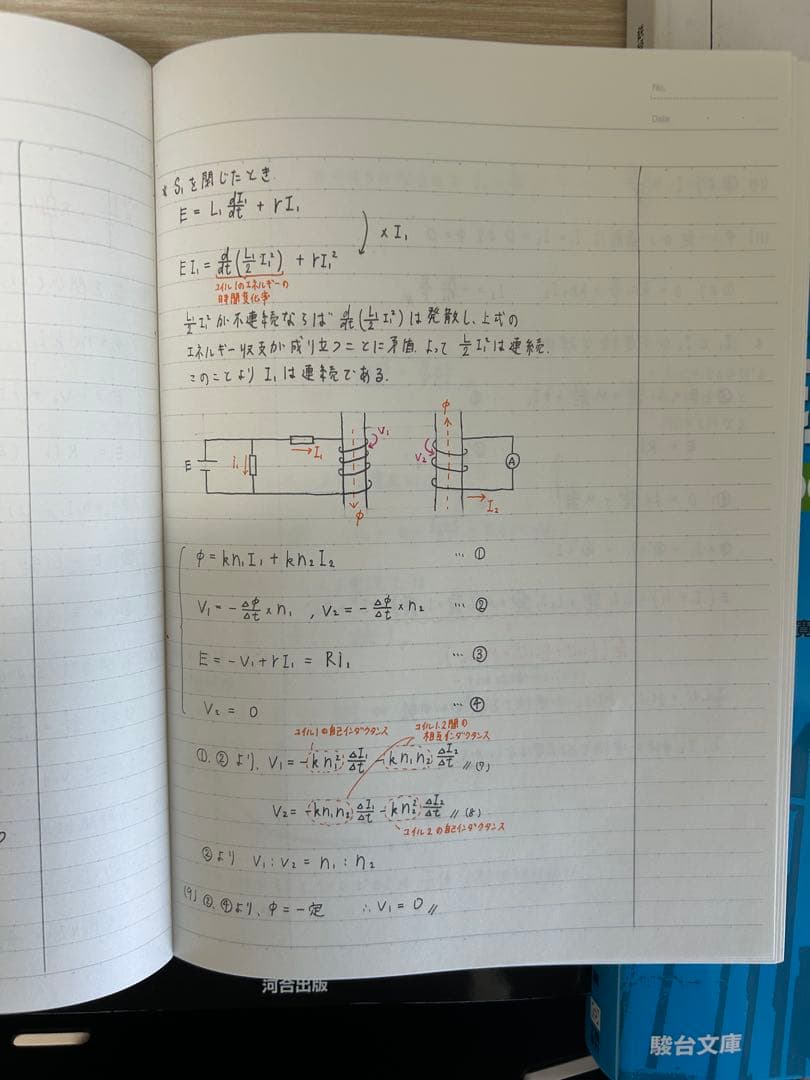 No.
Date
* S₁を閉じたとき
E = L₁ dI₁/dt + rI₁
× I₁
EI₁ = d/dt(L₁/2 I₁²) + rI₁²
コイル1のエネルギーの
時間変化率
L₁/2 I₁² が不連続ならば d/dt(L₁/2 I₁²) は発散し、上式の
エネルギー収支が成り立つことに矛盾. よって L₁/2 I₁² は連続.
このことより I₁ は連続である.
E i₁ I₁ V₁ φ
φ V₂ A I₂
φ = kn₁I₁ + kn₂I₂ … ①
V₁ = -Δφ/Δt × n₁ , V₂ = -Δφ/Δt × n₂ … ②
E = -V₁ + rI₁ = Ri₁ … ③
V₂ = 0 … ④
コイル1の自己インダクタンス
コイル1,2間の
相互インダクタンス
①, ②より、 V₁ = -kn₁² ΔI₁/Δt - kn₁n₂ ΔI₂/Δt // (7)
V₂ = -kn₁n₂ ΔI₁/Δt - kn₂² ΔI₂/Δt // (8)
コイル2の自己インダクタンス
②より V₁ : V₂ = n₁ : n₂
(9) ②, ④より、φ = 一定 ∴ V₁ = 0 //
河合出版
駿台文庫